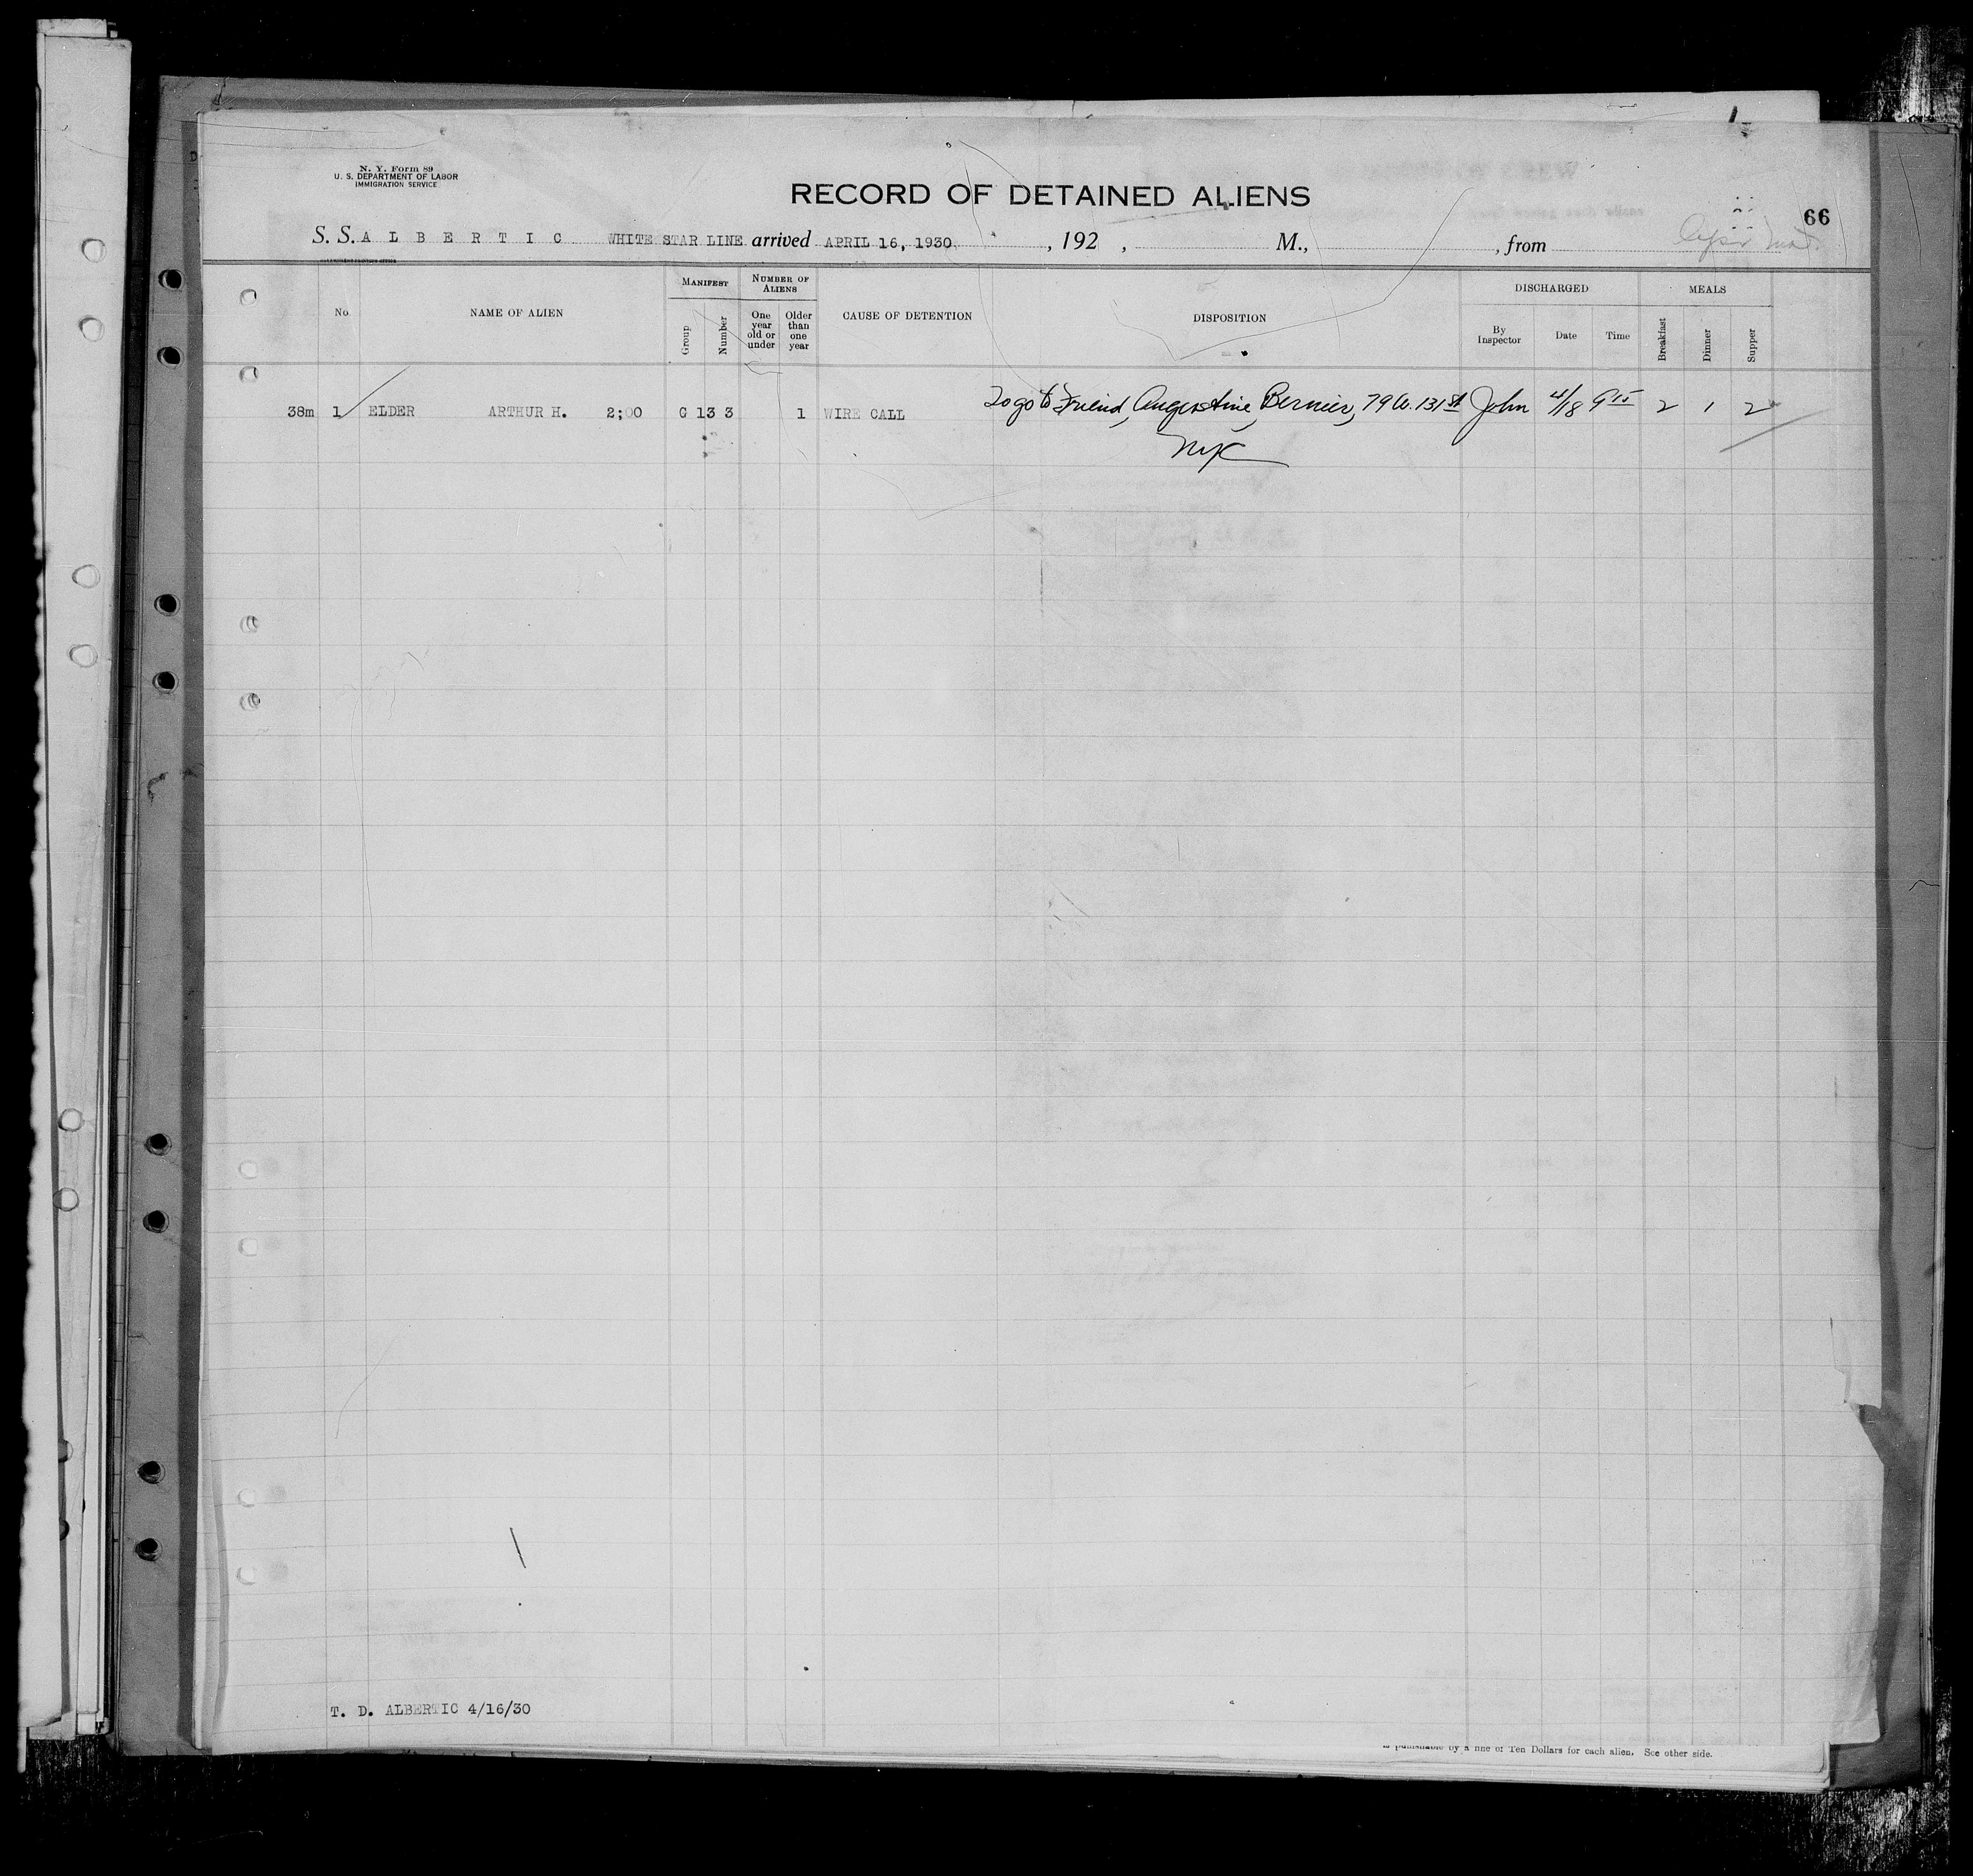 N. Y. Form 89
U. S. DEPARTMENT OF LABOR
IMMIGRATION SERVICE
RECORD OF DETAINED ALIENS
66
S. S. A L B E R T I C WHITE STAR LINE arrived APRIL 16, 1930. , 192 , M., , from
GOVERNMENT PRINTING OFFICE
No.
NAME OF ALIEN
MANIFEST
Group
Number
NUMBER OF ALIENS
One year old or under
Older than one year
CAUSE OF DETENTION
DISPOSITION
DISCHARGED
By Inspector
Date
Time
MEALS
Breakfast
Dinner
Supper
38m 1 ELDER ARTHUR H. 2;00 G 13 3 1 WIRE CALL To go to Friend, Augustine Bernier, 79 W. 131 st John 4/18 9 15 2 1 2
NYC
T. D. ALBERTIC 4/16/30
is punishable by a fine of Ten Dollars for each alien. See other side.